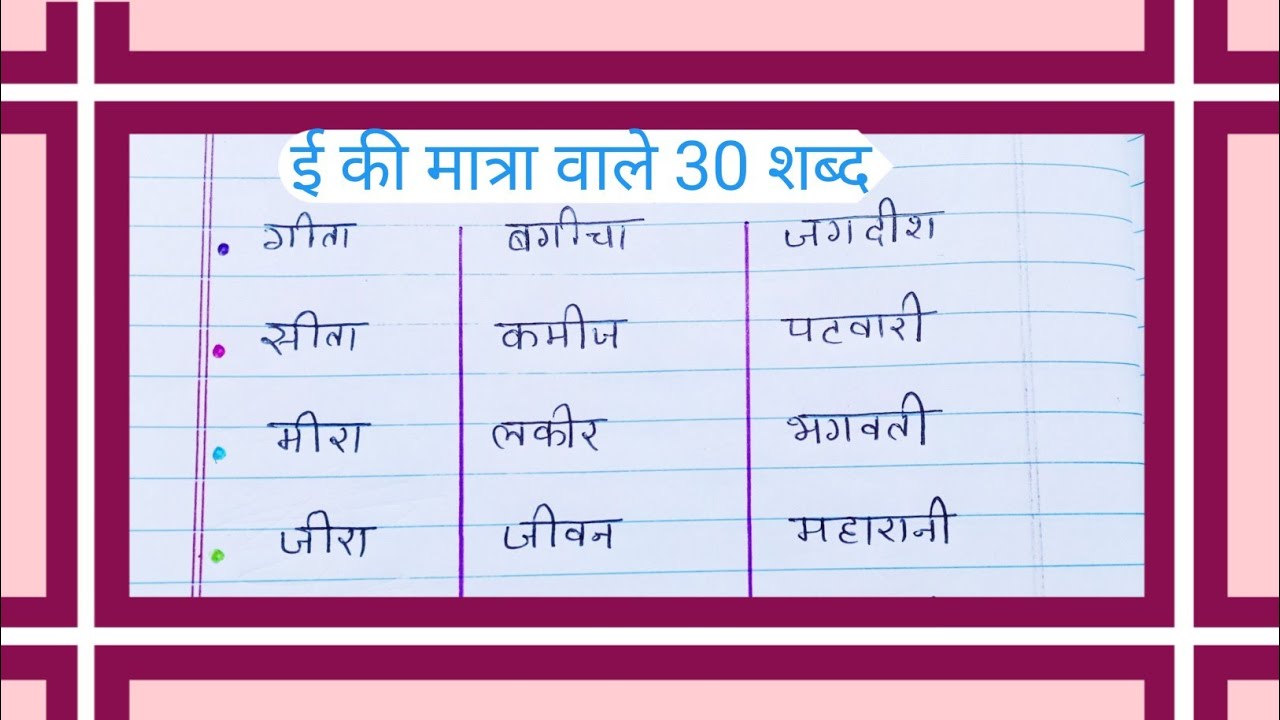 ई की मात्रा वाले 30 शब्द
गीता बगीचा जगदीश
सीता कमीज पटवारी
मीरा लकीर भगवती
जीरा जीवन महारानी